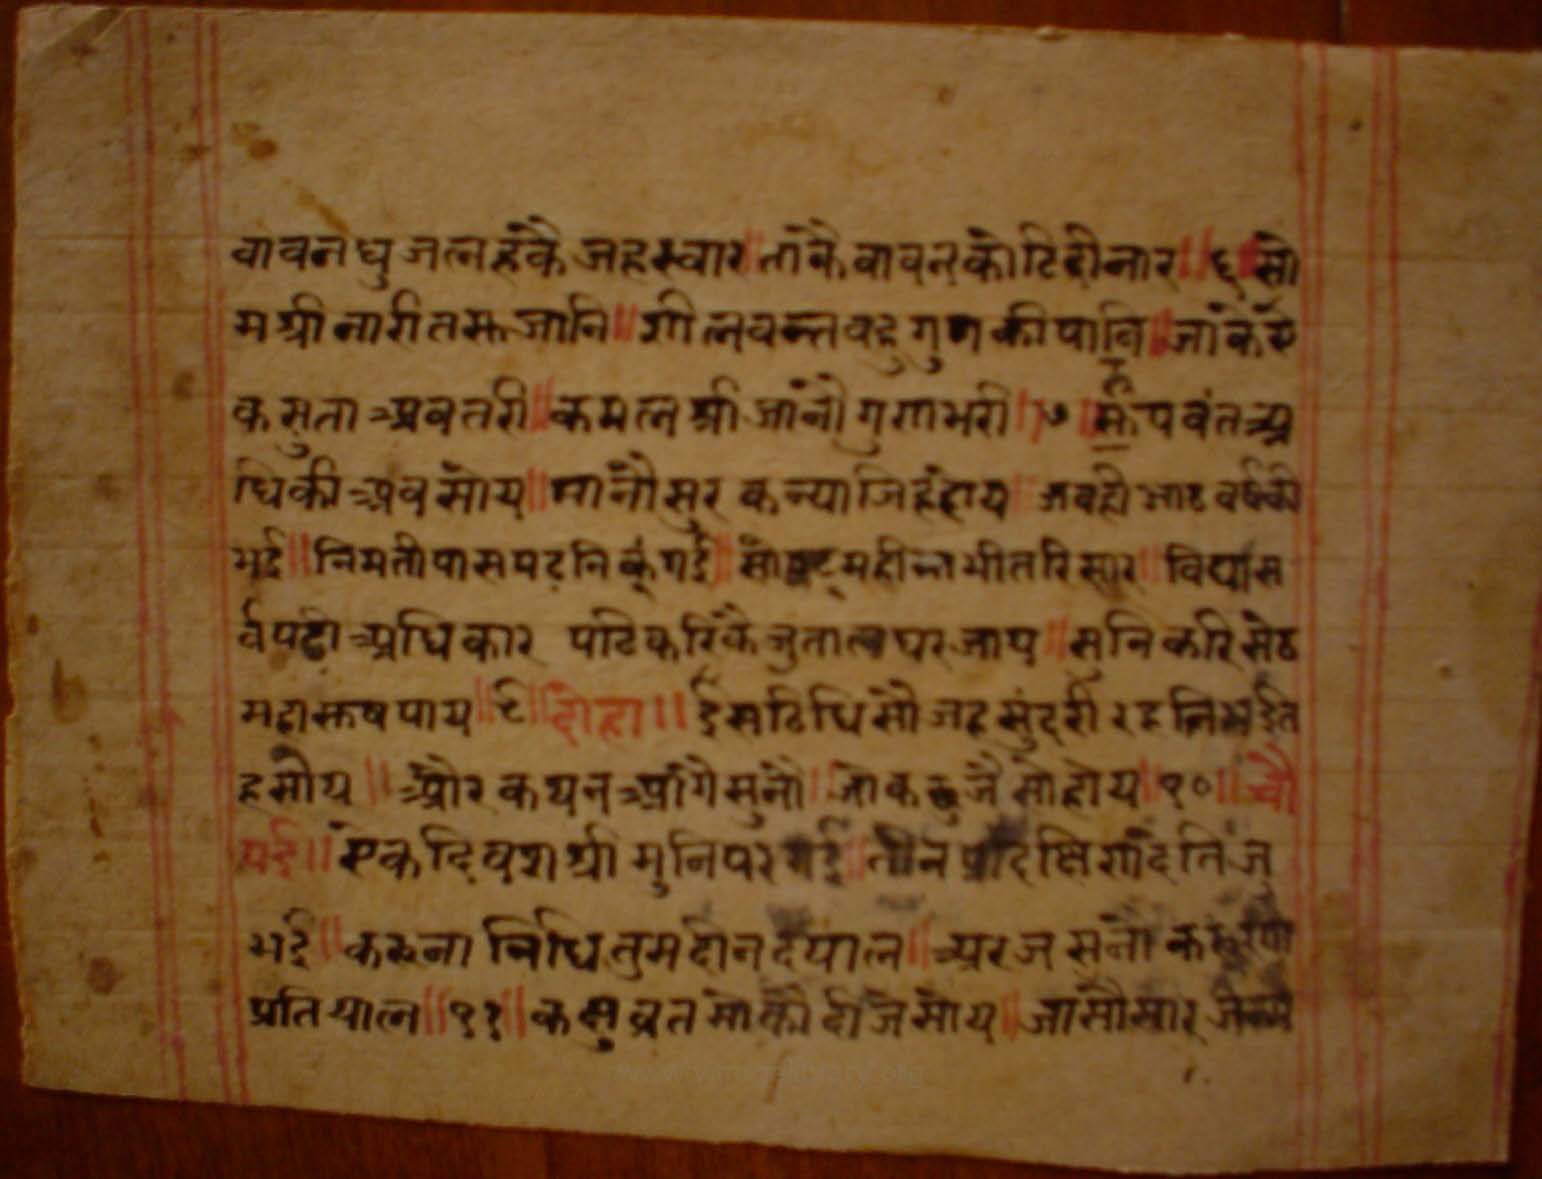 वावन घु जल हंकै जह स्वार ॥ तांकै वावन कोटि दीनार ॥ ६ ॥ सो
म श्री नारी तस जानि ॥ शीलवन्त वहु गुण की पानि ॥ जांकै ऐ
क सुता अवतरी ॥ कमल श्री जांनौ गुण भरी ॥ ७ ॥ रूपवंत अ
धिकी अव सोय ॥ मानौ सुर कन्या जि हंहोय ॥ जवही आठ वर्ष की
भई ॥ जिमती पास पढ़नि कूं गई ॥ सो षट् महीना भीतरि सार ॥ विद्या स
र्व पढी अधिकार पढि करिकै जु ताल घर जाय ॥ सुनि करि सेठ
महा सुष पाय ॥ ९ ॥ दोहा ॥ ई स विधि सौ जह सुंदरी रह
ह सोय ॥ और कथन आगै सुनौ ॥ जो कछु जै सो होय ॥ १० ॥ चौ
पई ॥ ऐक दिवश श्री मुनि पर गई ॥ तीन प्रादक्षिणां देति ज
भई ॥ करुना निधि तुम दीन दयाल ॥ अरज सुनौ
प्रतिपाल ॥ ११ ॥ कछु व्रत मोकौ दीजै सोय ॥ जासौ सार